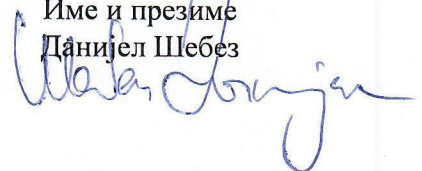 Име и презиме
Данијел Шебез